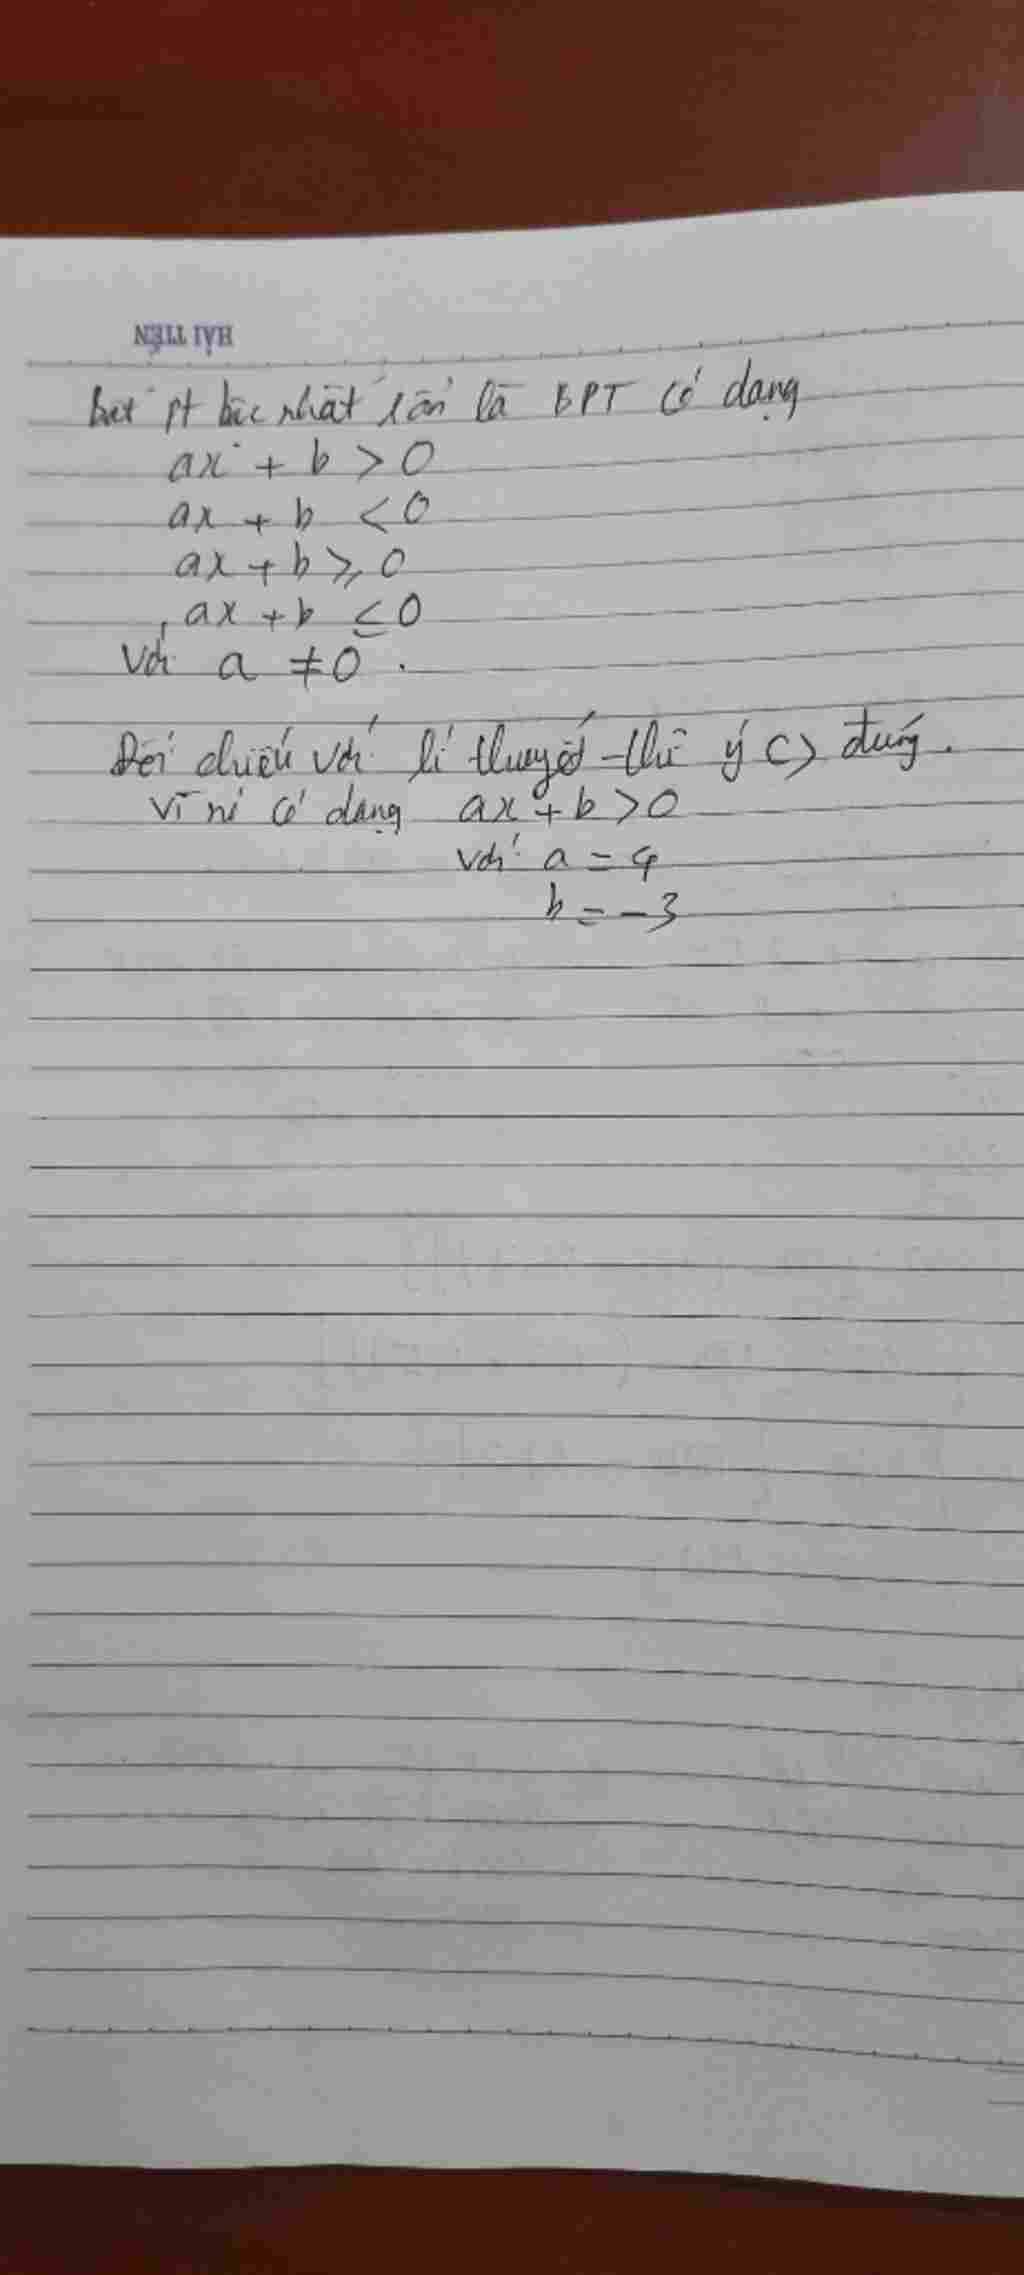 HẢI TIẾN
Bất pt bậc nhất 1 ẩn là BPT có dạng
ax + b > 0
ax + b < 0
ax + b ≥ 0
ax + b ≤ 0
Với a ≠ 0.
Đối chiếu với lí thuyết thì ý C) đúng.
Vì nó có dạng ax + b > 0
với a = 4
b = -3